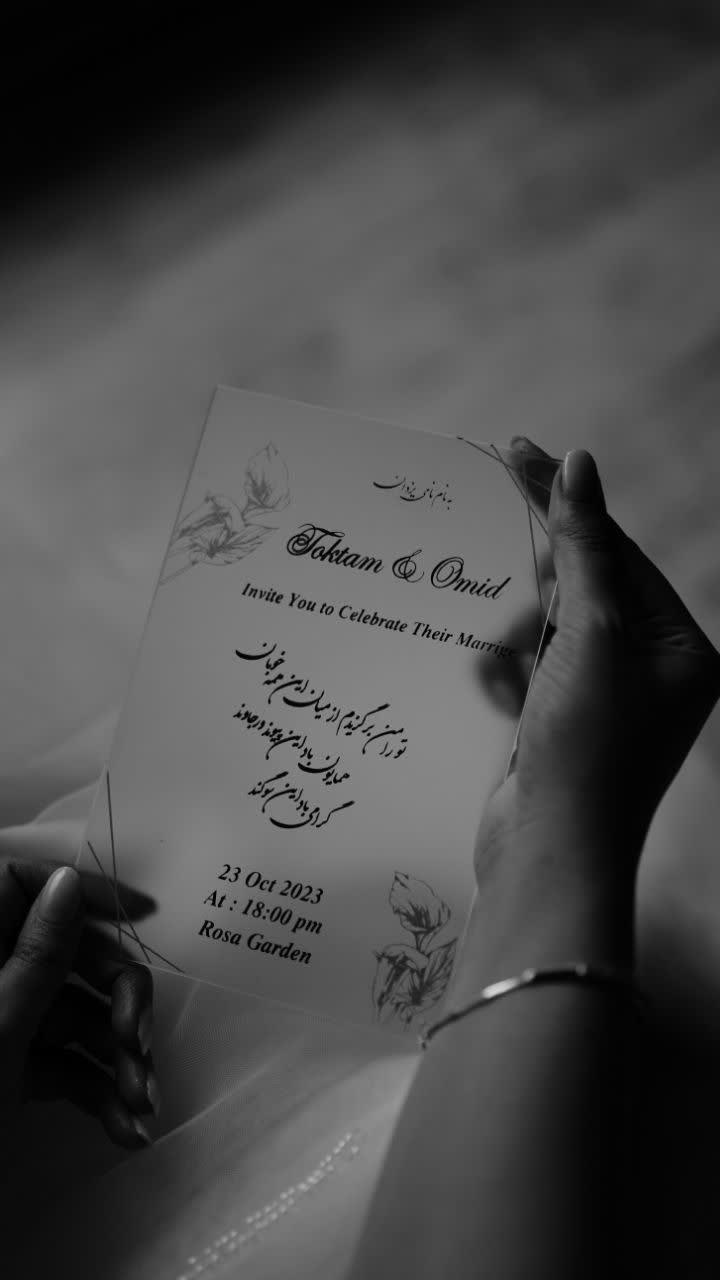 به نام نامی یزدان
Toktam & Omid
Invite You to Celebrate Their Marrige
تو را من برگزیدم از میان این همه خوبان
همایون باد این پیوند ورجاوند
گرامی باد این سوگند
23 Oct 2023
At : 18:00 pm
Rosa Garden